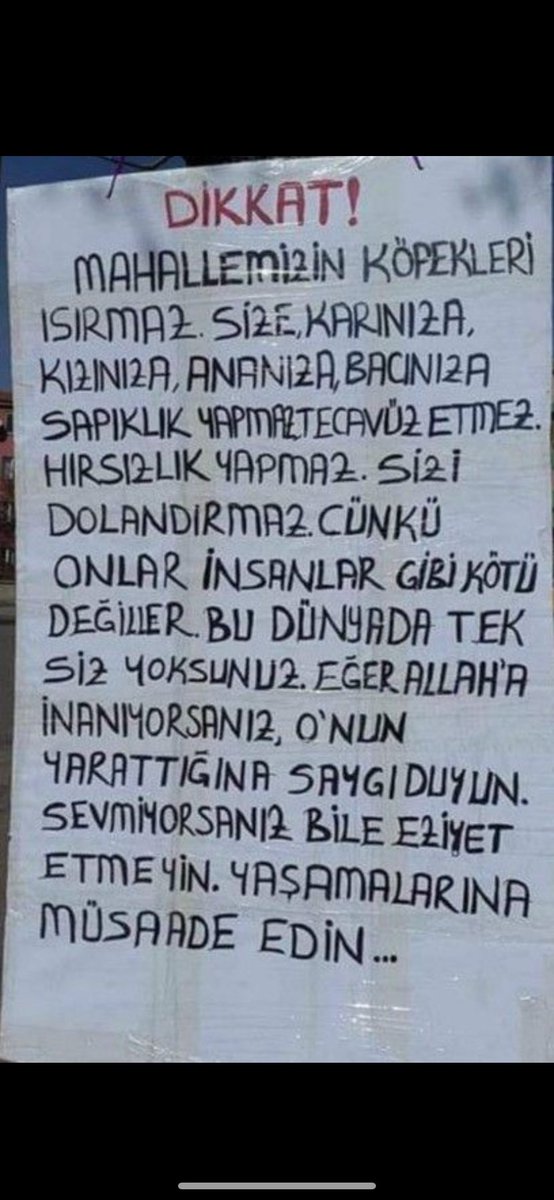 DİKKAT!
MAHALLEMİZİN KÖPEKLERİ
ISIRMAZ. SİZE, KARINIZA,
KIZINIZA, ANANIZA, BACINIZA
SAPIKLIK YAPMAZ, TECAVÜZ ETMEZ.
HIRSIZLIK YAPMAZ. SİZİ
DOLANDIRMAZ. CÜNKÜ
ONLAR İNSANLAR GİBİ KÖTÜ
DEĞİLLER. BU DÜNYADA TEK
SİZ YOKSUNUZ. EĞER ALLAH'A
İNANIYORSANIZ, O'NUN
YARATTIĞINA SAYGI DUYUN.
SEVMİYORSANIZ BİLE EZİYET
ETMEYİN. YAŞAMALARINA
MÜSAADE EDİN...